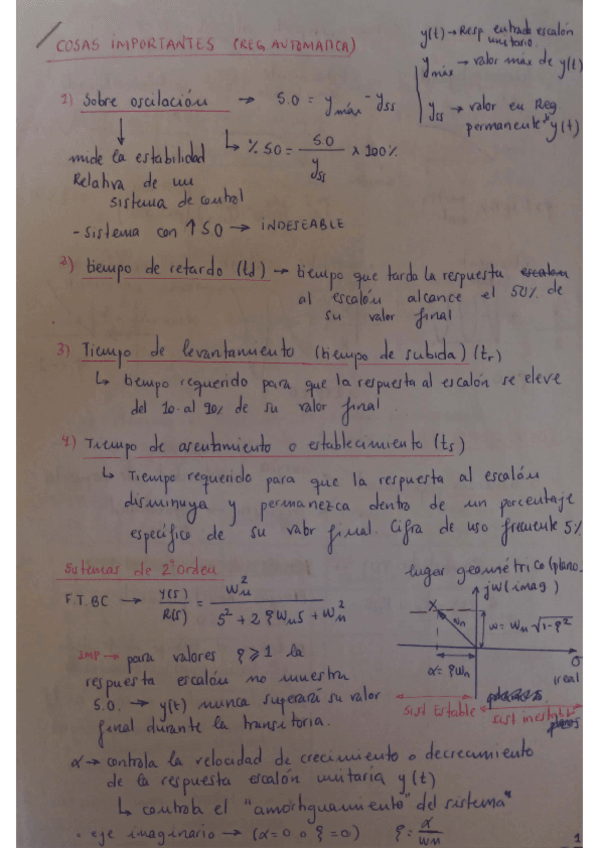 COSAS IMPORTANTES (REG AUTOMÁTICA)
y(t) → Resp entrada escalón
unitario.
ymáx → valor máx de y(t)
yss → valor en Reg
permanente y(t)
1) Sobre oscilación → S.O = ymáx - yss
↳ % SO = S.O / yss x 100%
mide la estabilidad
Relativa de un
sistema de control
- Sistema con ↑ SO → INDESEABLE
2) tiempo de retardo (td) → tiempo que tarda la respuesta escalon
al escalón alcance el 50% de
su valor final
3) Tiempo de levantamiento (tiempo de subida) (tr)
↳ tiempo requerido para que la respuesta al escalón se eleve
del 10 al 90% de su valor final
4) Tiempo de asentamiento o establecimiento (ts)
↳ Tiempo requerido para que la respuesta al escalón
disminuya y permanezca dentro de un porcentaje
específico de su valor final. Cifra de uso frecuente 5%
Sistemas de 2º orden
F.T.BC → Y(s)/R(s) = Wn² / (s² + 2ξWns + Wn²)
lugar geométrico (plano
jw (imag)
X
Wn
w = Wn √1-ξ²
α = ξWn
σ
(real
Sist Estable
sist inestable
IMP → para valores ξ ≥ 1 la
respuesta escalón no muestra
S.O. → y(t) nunca superará su valor
final durante la transitoria.
α → controla la velocidad de crecimiento o decrecimiento
de la respuesta escalón unitaria y(t)
↳ controla el "amortiguamiento" del sistema"
• eje imaginario → (α = 0 o ξ = 0) ξ = α/Wn
1